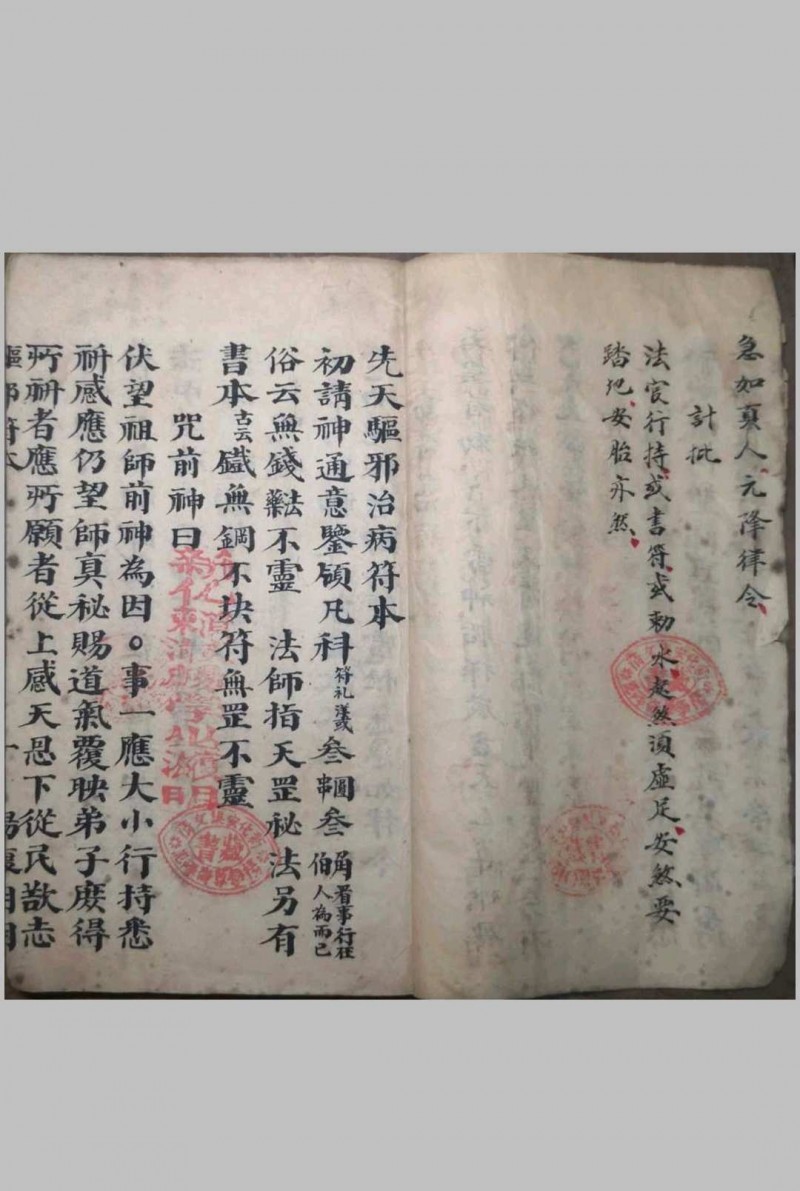 急如真人元降律令
計批
法官行持或書符或勅水起煞須虛足安煞要
踏地安胎亦然
先天驅邪治病符本
初請神通意鑒領凡科符礼洋或叁圓串叁角看事行在伯人為而已
俗云無錢法不靈 法師指天罡秘法另有
書本古云鐵無鋼不块符無罡不靈
咒前神曰
伏望祖師前神為因○事一應大小行持悉
祈感應仍望師真秘賜道氣覆映弟子庶得
所祈者應所願者從上感天恩下從民歆志
驅邪符本